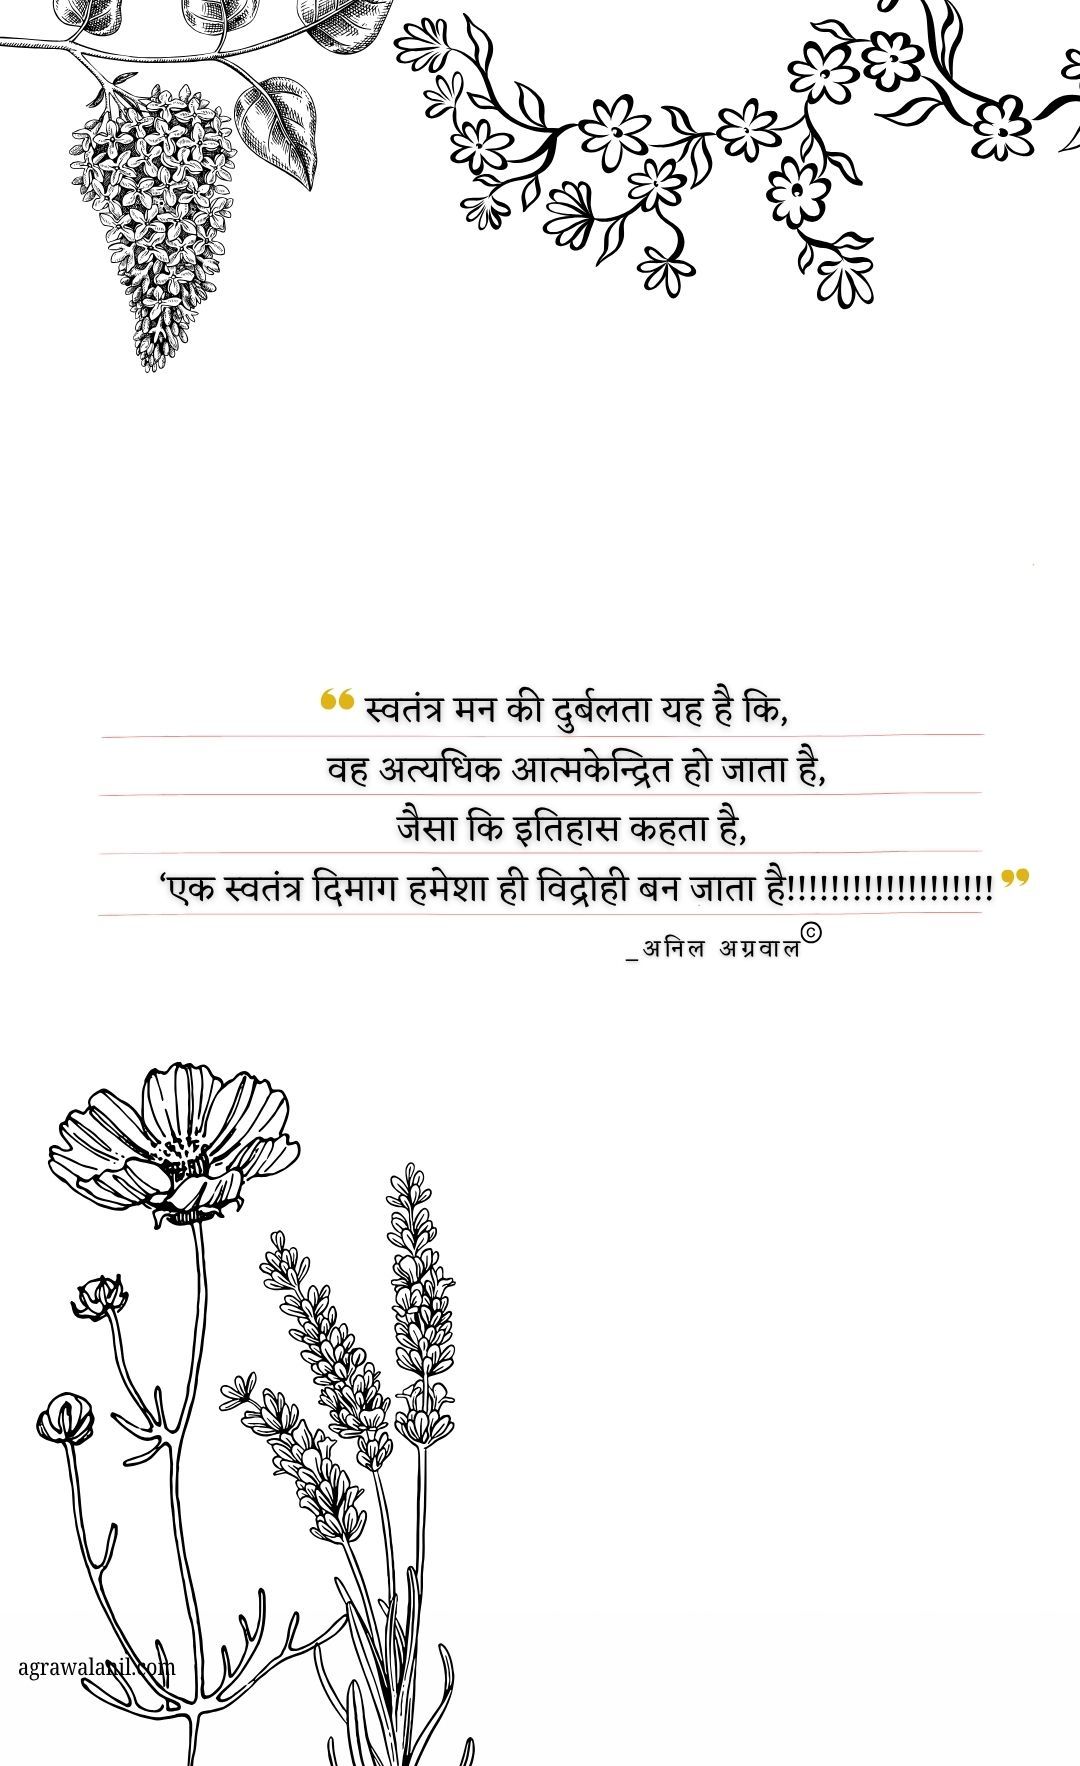 ❝ स्वतंत्र मन की दुर्बलता यह है कि,
वह अत्यधिक आत्मकेन्द्रित हो जाता है,
जैसा कि इतिहास कहता है,
‘एक स्वतंत्र दिमाग हमेशा ही विद्रोही बन जाता है!!!!!!!!!!!!!!!!!!! ❞
_अनिल अग्रवाल©
agrawalanil.com